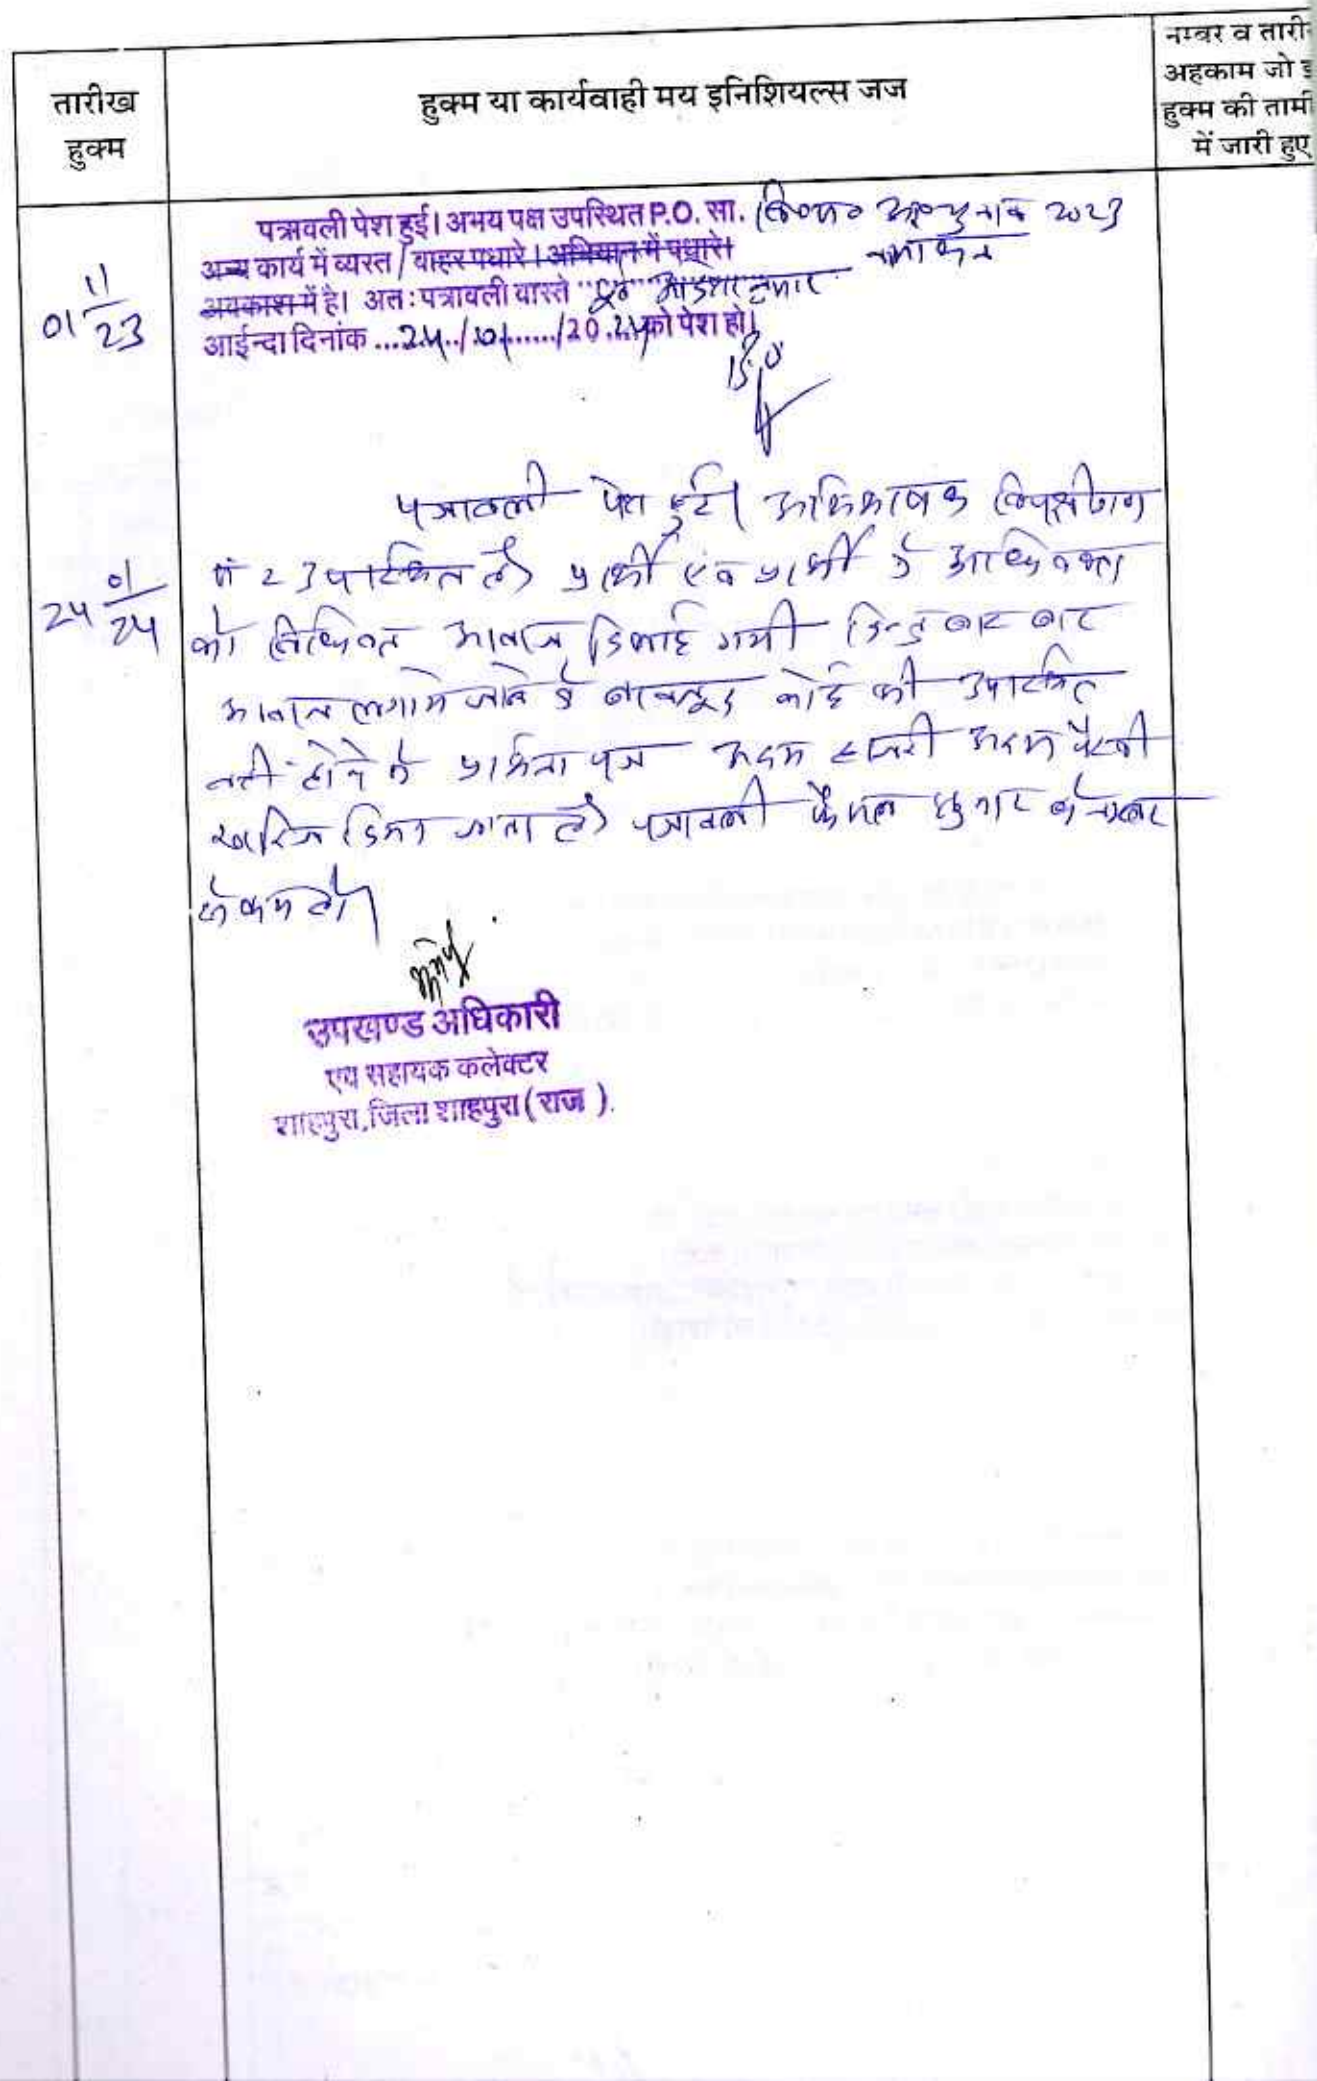 तारीख
हुक्म
हुक्म या कार्यवाही मय इनिशियल्स जज
नम्बर व तारी
अहकाम जो इ
हुक्म की तामी
में जारी हुए
01 11/23
पत्रावली पेश हुई। अभय पक्ष उपस्थित P.O. सा. 2023
अन्य कार्य में व्यस्त / बाहर पधारे। अभियान में पधारे।
अवकाश में है। अतः पत्रावली वास्ते
आईन्दा दिनांक ...24../01....../2024 को पेश हो।
24 01/24
पत्रावली पेश हुई। अभिभाषक विपक्षीगण
नं 2 उपस्थित है। प्रार्थी एवं प्रार्थी के अधिवक्ता
को विधिवत आवाज दिलाई गयी किन्तु बार बार
आवाज लगाये जाने के बावजूद कोई भी उपस्थित
नहीं होने से प्रार्थना पत्र अदम हाजरी अदम पैरवी
खारिज किया जाता है। पत्रावली फैसल शुमार नम्बर
से कम हो।
उपखण्ड अधिकारी
एवं सहायक कलेक्टर
शाहपुरा, जिला शाहपुरा (राज ).